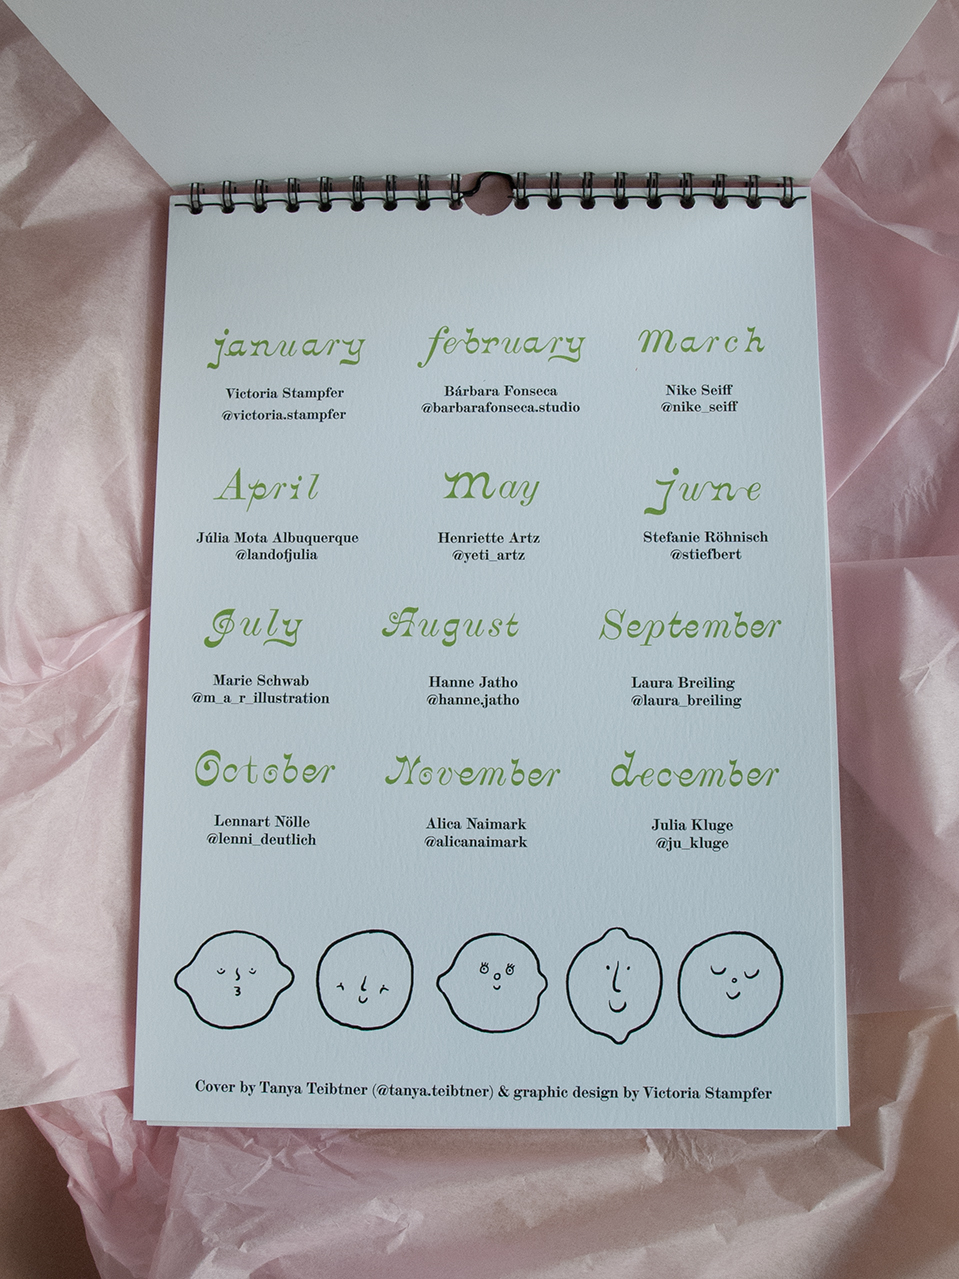 january
Victoria Stampfer
@victoria.stampfer
february
Bárbara Fonseca
@barbarafonseca.studio
March
Nike Seiff
@nike_seiff
April
Júlia Mota Albuquerque
@landofjulia
May
Henriette Artz
@yeti_artz
june
Stefanie Röhnisch
@stiefbert
July
Marie Schwab
@m_a_r_illustration
August
Hanne Jatho
@hanne.jatho
September
Laura Breiling
@laura_breiling
October
Lennart Nölle
@lenni_deutlich
November
Alica Naimark
@alicanaimark
december
Julia Kluge
@ju_kluge
Cover by Tanya Teibtner (@tanya.teibtner) & graphic design by Victoria Stampfer